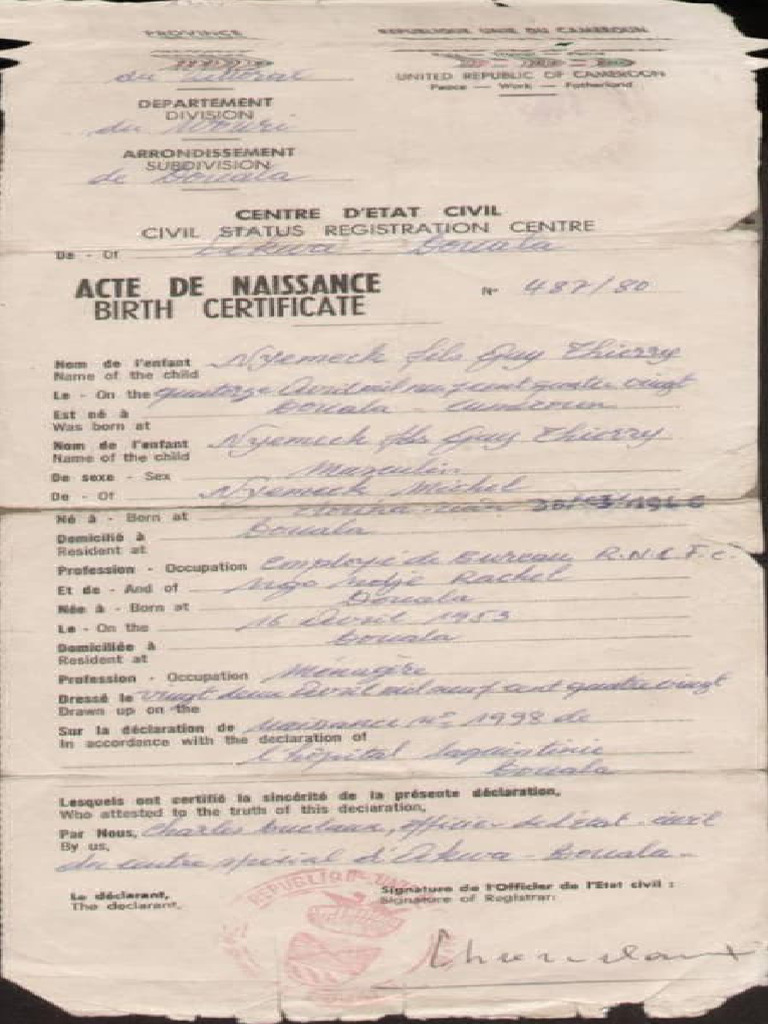 PROVINCE
REPUBLIQUE UNIE DU CAMEROUN
du Littoral
UNITED REPUBLIC OF CAMEROON
Peace — Work — Fatherland
DEPARTEMENT
DIVISION
du Wouri
ARRONDISSEMENT
SUBDIVISION
de Douala
CENTRE D'ETAT CIVIL
CIVIL STATUS REGISTRATION CENTRE
De - Of Akwa - Douala
ACTE DE NAISSANCE
BIRTH CERTIFICATE
N° 487/80
Nom de l'enfant Nyemeck fils Guy Thierry
Name of the child
Le - On the quatorze Avril mil neuf cent quatre vingt
Est né à Douala - Cameroun
Was born at
Nom de l'enfant Nyemeck fils Guy Thierry
Name of the child
De sexe - Sex Masculin
De - Of Nyemeck Michel
Né à - Born at
Domicilié à Douala
Resident at
Profession - Occupation Employé de Bureau
Et de - And of Ngo Rachel
Née à - Born at Douala
Le - On the 16 Avril 1953
Domiciliée à Douala
Resident at
Profession - Occupation Ménagère
Dressé le vingt deux Avril mil neuf cent quatre vingt
Drawn up on the
Sur la déclaration de naissance N° 1998 de
In accordance with the declaration of
l'hôpital Laquintinie
Douala
Lesquels ont certifié la sincérité de la présente déclaration,
Who attested to the truth of this declaration,
Par Nous, Charles officier de l'état - civil
By us,
du centre spécial d'Akwa - Douala -
Le déclarant,
The declarant,
Signature de l'Officier de l'Etat civil :
Signature of Registrar:
REPUBLIQUE